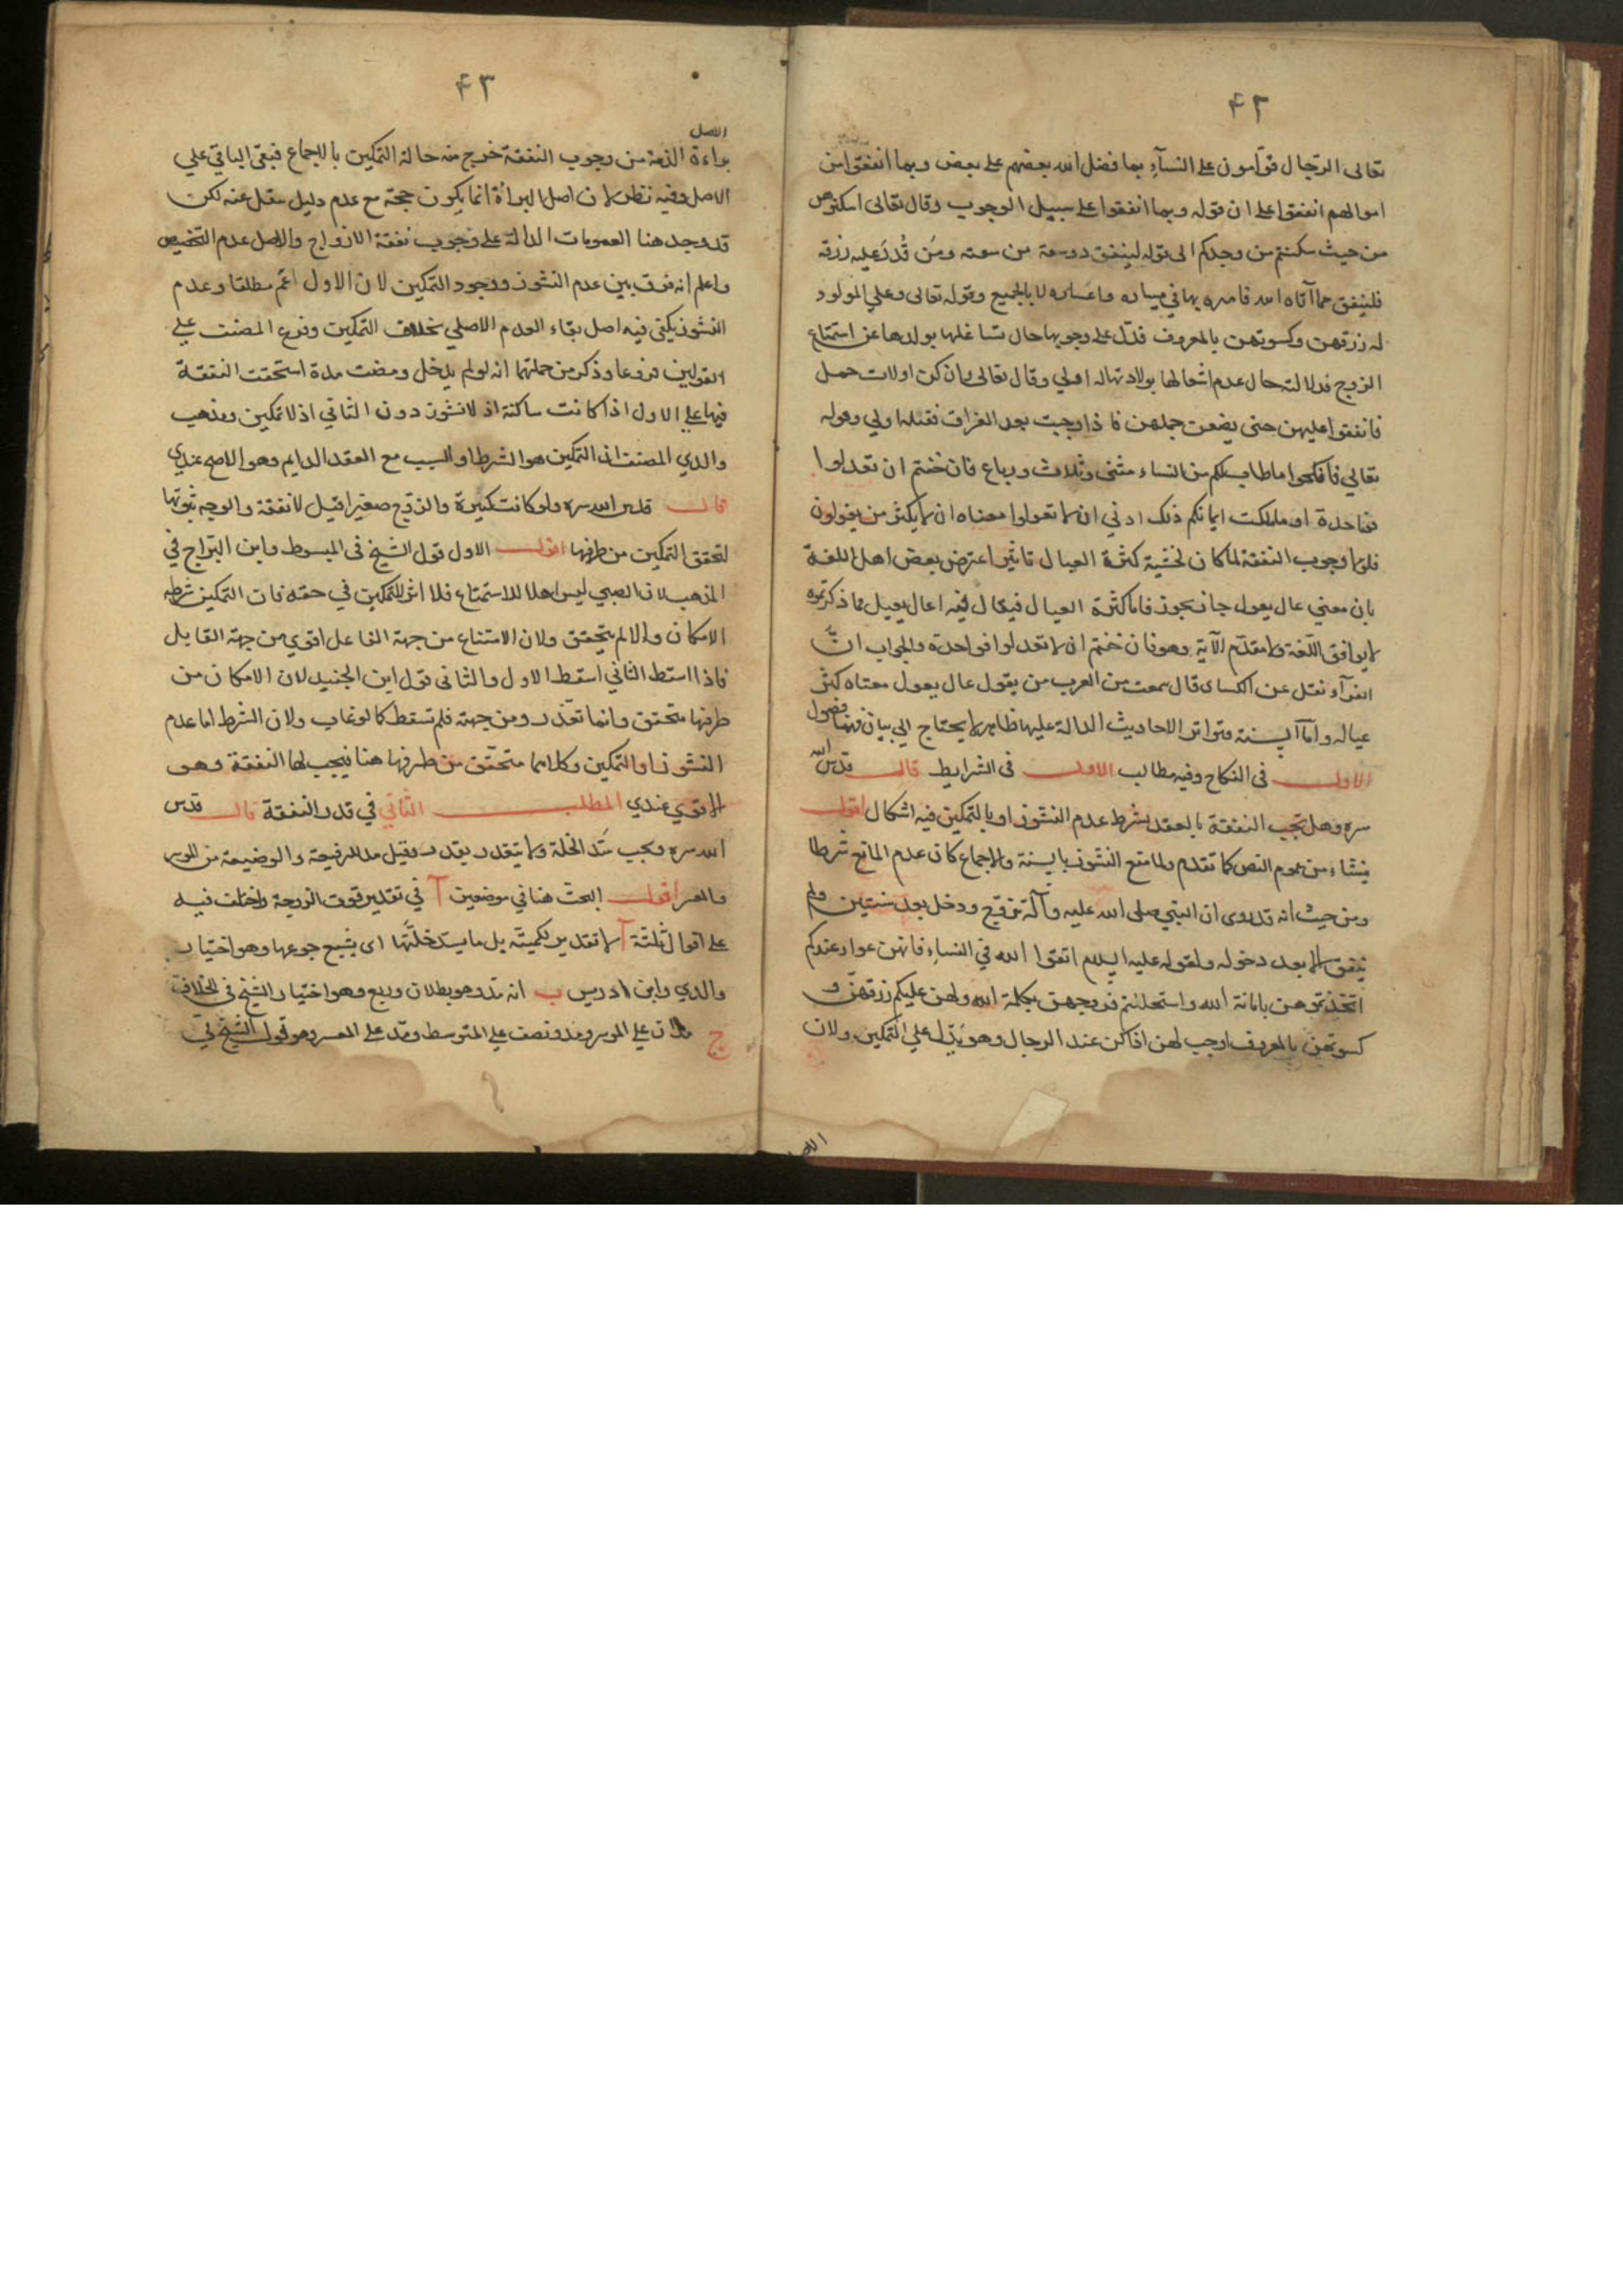 ۴۲
تعالى الرّجال قوّامون على النسآءِ بما فضل الله بعضهم على بعض وبما انفقوا من
اموالهم انفقوا على ان قوله وبما انفقوا على سبيل الوجوب وقال تعالى اسكنوهن
من حيث سكنتم من وجدكم الى قوله لينفق ذو سعة من سعته ومَن قُدرَ عليه رزقه
فلينفق مما آتاه الله فامره بها في يساره واعساره لا بالجميع وبقوله تعالى وعلى المولود
له رزقهن وكسوتهن بالمعروف فدّل على وجوبها حال تشاغلها بولدها عن استمتاع
الزوج فدلالته حال عدم اشغالها بولادتها له اولى وقال تعالى وان كن اولات حمل
فانفقوا عليهن حتى يضعن حملهن فاذا وجبت بعد الفراق فقبله اولى وقوله
تعالى فانكحوا ما طاب لكم من النساء مثنى وثلاث ورباع فان خفتم ان لا تعدلوا
فواحدة او ما ملكت ايمانكم ذلك ادنى ان لا تعولوا معناه ان لا يكثر من يعولون
فلولا وجوب النفقة لما كان لخشية كثرة العيال تاثير اعترض بعض اهل اللغة
بان معنى عال يعول جار يجور فاما كثرة العيال فيقال فيه اعال يعيل فما ذكرتموه
لا يوافق اللغة ولا مقدّم الآية وهو فان خفتم ان لا تعدلوا فواحدة والجواب انّ
الفرآء نقل عن الكساى قال سمعت من العرب من يقول عال يعول معناه كثر
عياله وامّا السنة فتواتر الاحاديث الدالة عليها ظاهر لا يحتاج الى بيان فهنا فصول
الاول في النكاح وفيه مطالب الاول في الشرايط قال قدس الله
سره وهل تجب النفقة بالعقد بشرط عدم النشوز او بالتمكين فيه اشكال اقول
ينشاء من عموم النص كما تقدم ولما منع النشوز بالسنة والاجماع كان عدم المانع شرطا
ومن حيث انه قد روى ان النبي صلى الله عليه وآله تزوّج ودخل بعد سنتين ولم
ينفق الا بعد دخوله ولقوله عليه السلام اتقوا الله في النساءِ فانهن عوار عندكم
اتخذتموهن بامانة الله واستحللتم فروجهن بكلمة الله ولهن عليكم رزقهنّ و
كسوتهن بالمعروف اوجب لهن اذا كن عند الرجال وهو يدّل على التمكين ولان
الاصل
۴۳
الاصل
براءة الذمة من وجوب النفقة خرج منه حالة التمكين بالاجماع فبقى الباقي على
الاصل وفيه نظر لان اصل البرأة انما يكون حجة مع عدم دليل ينقل عنه لكن
قد وجد هنا العمومات الدالة على وجوب نفقة الازواج والاصل عدم التخصيص
واعلم انه فرق بين عدم النشوز ووجود التمكين لان الاول اعّم مطلقا وعدم
النشوز يكفى فيه اصل بقاء العدم الاصلي بخلاف التمكين وفرع المصنف على
القولين فروعا وذكر من جملتها انه لو لم يدخل ومضت مدة استحقت النفقة
فيها على الاول اذا كانت ساكنة اذ لا نشوز دون الثاني اذ لا تمكين ومذهب
والدي المصنف ان التمكين هو الشرط او السبب مع العقد الدايم وهو الاصح عندي
قال قدس الله سره ولو كانت كبيرة والزوج صغيرا قيل لا نفقة والوجه ثبوتها
لتحقق التمكين من طرفها اقول الاول قول الشيخ فى المبسوط وابن البرّاج في
المذهب لان الصبي ليس اهلا للاستمتاع فلا اثر للتمكين في حقه فان التمكين شرطه
الامكان والا لم يتحقق ولان الامتناع من جهة الفاعل اقوى من جهة القابل
فاذا اسقط الثاني اسقط الاول والثانى قول ابن الجنيد لان الامكان من
طرفها متحقق وانما تعّذر من جهته فلم تسقط كما لو غاب ولان الشرط اما عدم
النشوز او التمكين وكلاهما متحقّق من طرفها هنا فيجب لها النفقة وهو
الاقوى عندي المطلب الثاني في قدر النفقة قال قدس
الله سره ويجب سدّ الخلة ولا يتقدر بقدر وقيل مد للرفيعة والوضيعة من الموسر
والمعسر اقول البحث هنا في موضعين آ في تقدير قوت الزوجة واختلف فيه
على اقوال ثلثة آ لا تقدير لكميّته بل ما يسدّ خلّتها اى يشبع جوعها وهو اختيار
والدي وابن ادريس ب انه مدّ وهو رطلان وربع وهو اختيار الشيخ في الخلاف
ج مدان على الموسر ومد ونصف على المتوسط ومدّ على المعسر وهو قول الشيخ في